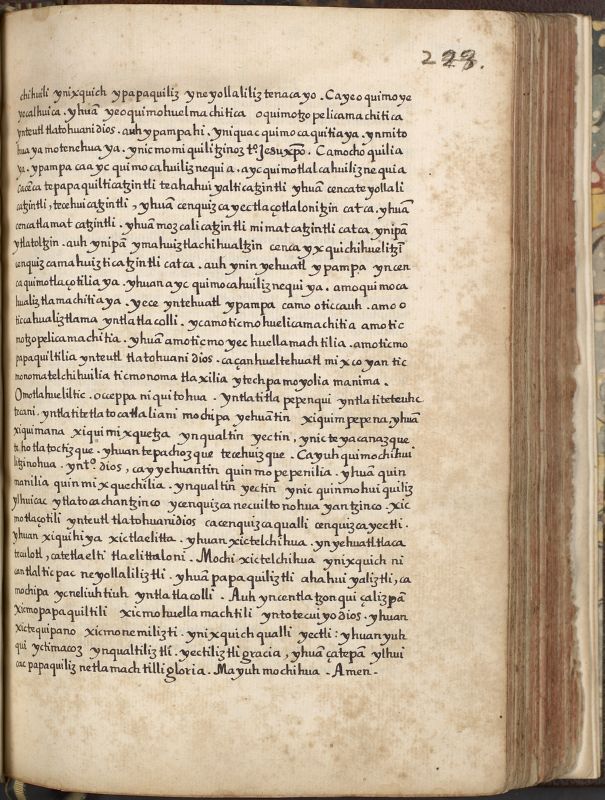 228.
chihuili ynixquich ypapaquiliz yneyollaliliz tenacayo. Cayeoquimoye
yecalhuica. yhuā yeoquimohuelmachitica oquimotzopelicamachitica
ynteutl tlatohuani dios. auh ypampa hi. yniquac quimocaquitiaya. ynmito
huaya motenehuaya. ynicmomiquilitzinoz tº Jesuxp̄o. Camocho quilia
ya. ypampa caayc quimocahuiliznequia. aycquimotlalcahuiliznequia
cacēca tepapaquilticatzintli teahahuiyalticatzintli yhuā cencateyollali
catzintli, tecehuicatzintli, yhuā cenquizcayectlaçotlalonitzin catca. yhuā
cencatlamatcatzintli. yhuā mozcalicatzintli mimatcatzintli catca ynipā
ytlatoltzin. auh ynipā ymahuiztlachihualtzin cenca yxquichihuelitzī
cenquizcamahuizticatzintli catca. auh ynin yehuatl ypampa yncen
caquimotlaçotiliaya. yhuan aycquimocahuiliznequiya. amoquimoca
hualiztlamachitiaya. yece yntehuatl ypampa camo oticcauh. amo o
ticcahualiztlama yntlatlacolli. ycamoticmohuelicamachitia amotic
motzopelicamachitia. yhuā amoticmoyechuellamachtilia. amoticmo
papaquiltilia ynteutl tlatohuani dios. caçanhueltehuatl mixcoyan tic
monomatelchihuilia ticmonomatlaxilia ytechpamoyolia manima.
Omotlahueliltic. occeppa niquitohua. yntlatitlapepenqui yntlatiteteuhc
tzani. yntlatitetlatocatlaliani mochipa yehuātin xiquimpepena, yhuā
xiquimana xiquimixquetza ynqualtin yectin, ynicteyacanazque
tehotlatoctizque. yhuantepachozque tecehuizque. Cayuhquimochihui
litzinohua. yntº. dios, cayyehuantin quinmopepenilia. yhuā quin
manilia quinmixquechilia. ynqualtin yectin ynicquinmohuiquiliz
ylhuicac ytlatocachantzinco ycenquizcanecuiltonohuayantzinco. xic
motlaçotili ynteutl tlatohuani dios cacenquizcaqualli cenquizcayectli.
yhuan xiquihiya xictlaelitta. yhuan xictelchihua. ynyehuatl tlaca
tecolotl, catetlaelti tlaelittaloni. Mochi xictelchihua ynixquich ni
cantlalticpac neyollaliliztli. yhuā papaquiliztli ahahuiyaliztli, ca
mochipa ycneliuhtiuh yntlatlacolli. Auh yncentlatzonquiçalizpā
xicmopapaquiltili xicmohuellamachtili yntotecuiyo dios. yhuan
xictequipano xicmonemilizti. ynixquich qualli yectli: yhuan yuh
qui yctimacoz ynqualtiliztli. yectiliztli gracia, yhuā çatepā ylhui
cac papaquiliz netlamachtilli gloria. Ma yuh mochihua. Amen.